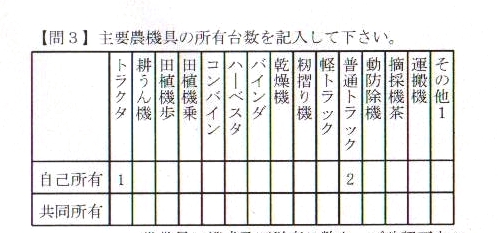 【問3】主要農機具の所有台数を記入して下さい。
トラクタ
耕うん機
田植機歩
田植機乗
コンバイン
ハーベスタ
バインダ
乾燥機
籾摺り機
軽トラック
普通トラック
動防除機
摘採機茶
運搬機
その他1
自己所有 1 2
共同所有